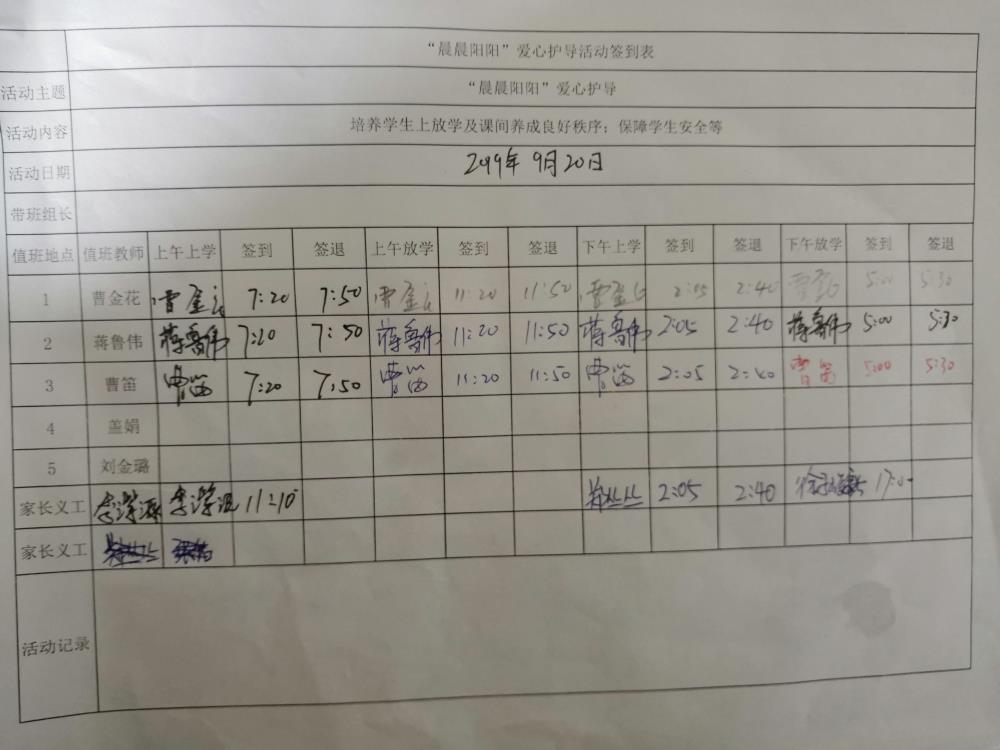 “晨晨阳阳”爱心护导活动签到表
活动主题 “晨晨阳阳”爱心护导
活动内容 培养学生上放学及课间养成良好秩序；保障学生安全等
活动日期 2019年 9月20日
带班组长
值班地点 值班教师 上午上学 签到 签退 上午放学 签到 签退 下午上学 签到 签退 下午放学 签到 签退
1 曹金花 曹金花 7:20 7:50 曹金花 11:20 11:50 曹金花 2:05 2:40 曹金花 5:00 5:30
2 蒋鲁伟 蒋鲁伟 7:20 7:50 蒋鲁伟 11:20 11:50 蒋鲁伟 2:05 2:40 蒋鲁伟 5:00 5:30
3 曹笛 曹笛 7:20 7:50 曹笛 11:20 11:50 曹笛 2:05 2:40 曹笛 5:00 5:30
4 盖娟
5 刘金璐
家长义工 11:10 2:05 2:40
家长义工
活动记录